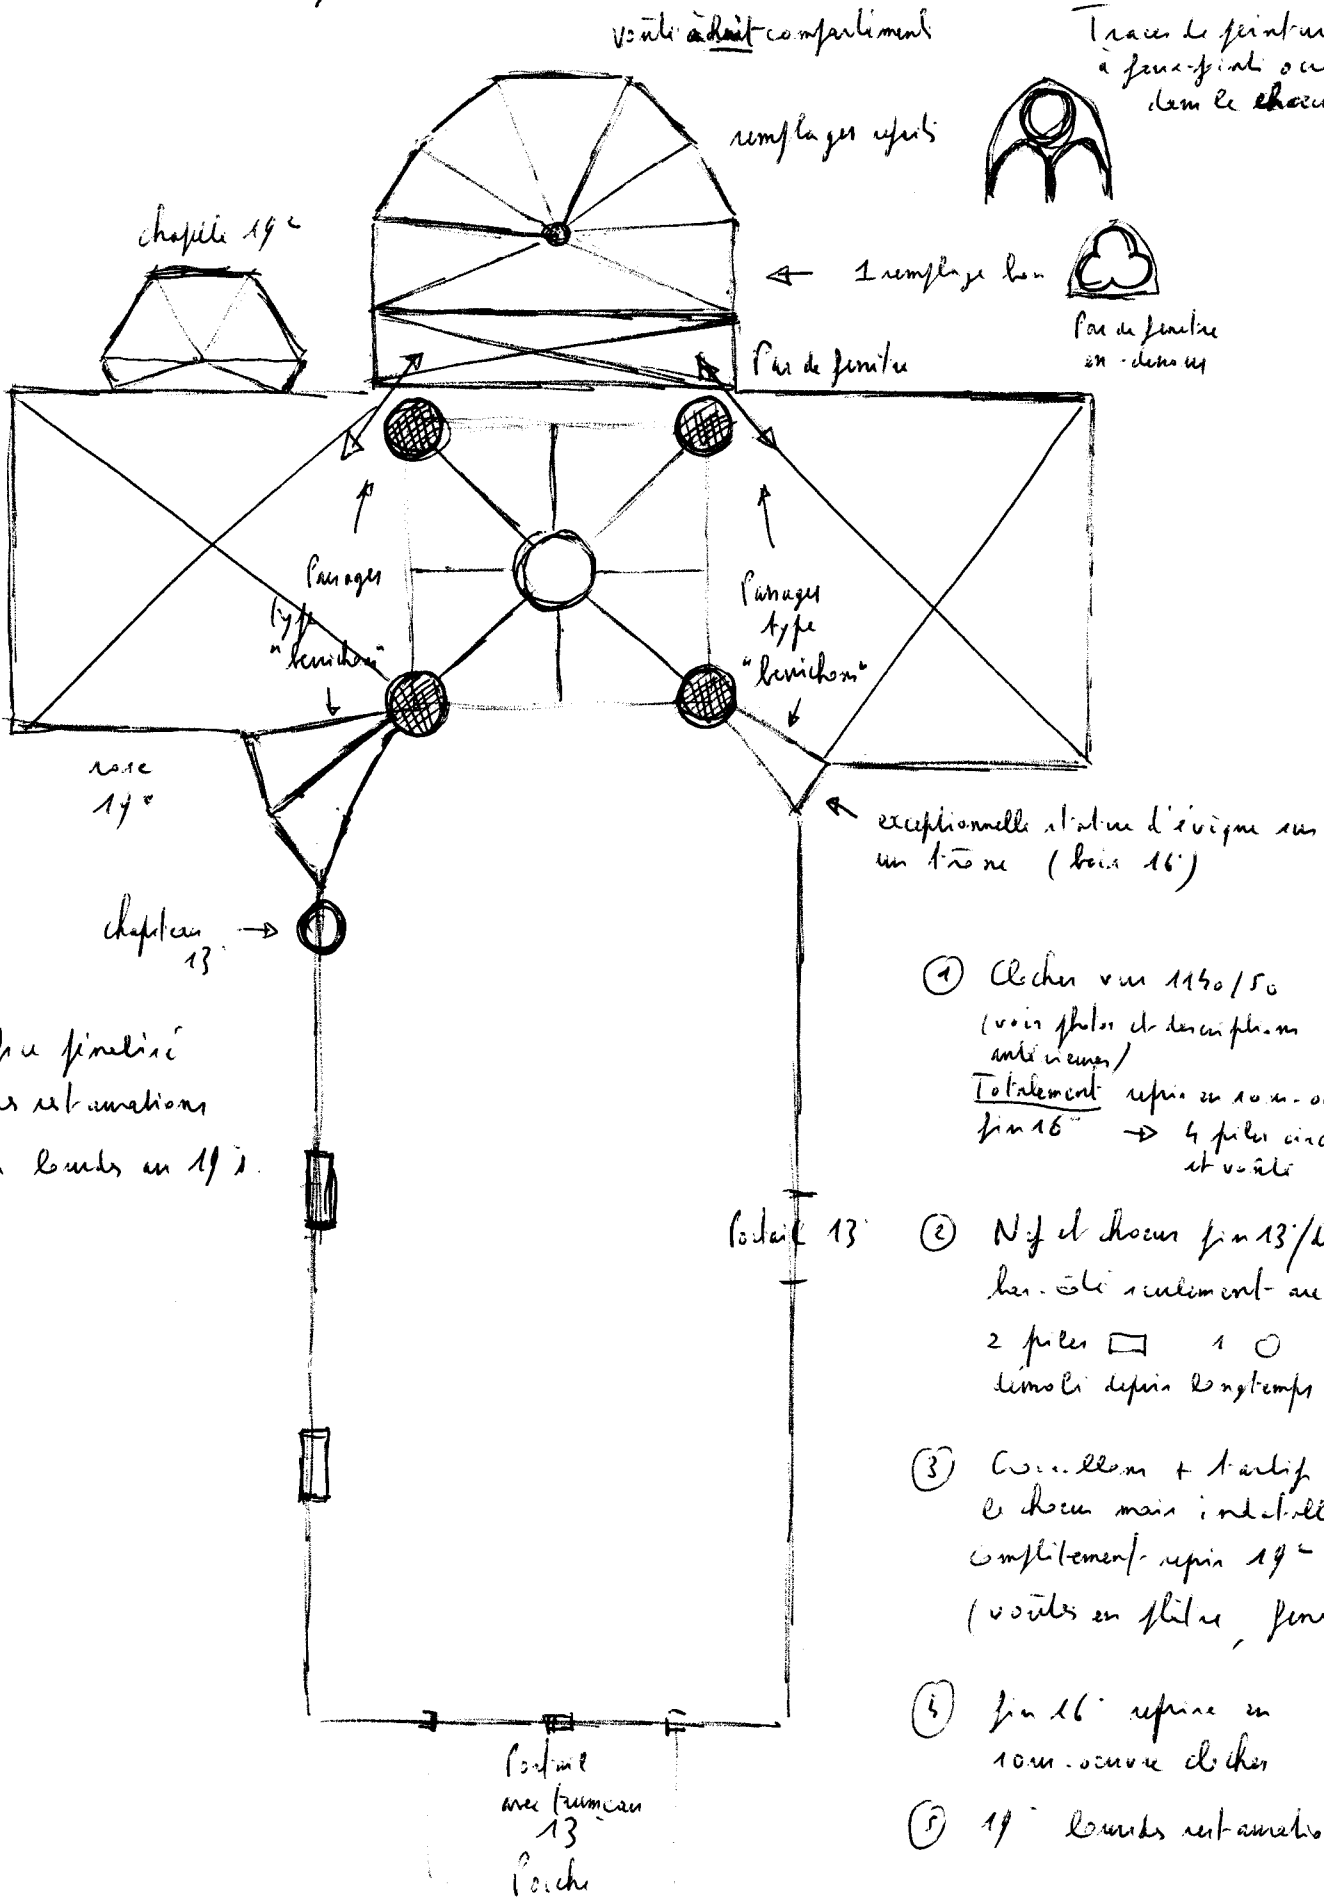 voûte à huit compartiments
Traces de peintur
à faux-joints ocr
dans le choeur
remplages repris
chapelle 19e
1 remplage bon
Pas de fenêtre
en-dessous
Pas de fenêtre
Passages
type
"berrichons"
Passages
type
"berrichons"
rose
19e
exceptionnelle statue d'évêque sur
un trône (bois 16°)
chapiteau
13°
① Clocher vers 1140/50
(voir photos et descriptions
antérieures)
Totalement repris en sous-o
fin 16° → 4 piles circ
et voûte
finalisé
restaurations
lourdes au 19 s.
Portail 13°
② Nef et choeur fin 13°/d
bas-côté seulement au
2 piles 1
démoli depuis longtemps
③ Croisillons + tardif
le choeur mais indatable
complètement repris 19e
(voûtes en plâtre, fen
④ fin 16° reprise en
sous-oeuvre clocher
⑤ 19° lourdes restauratio
Portail
avec trumeau
13°
Porche